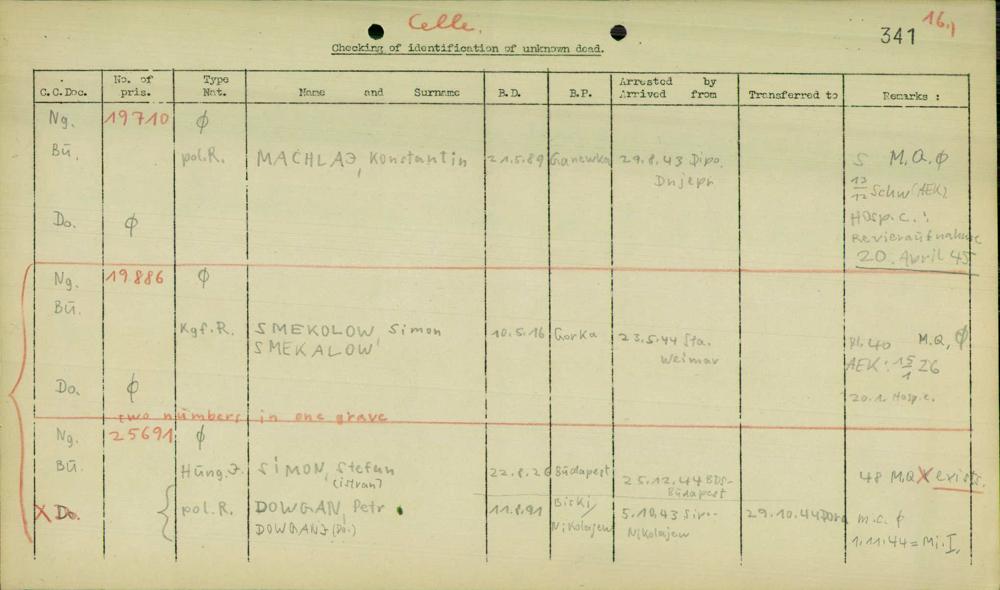 Celle.
16.)
341
Checking of identification of unknown dead.
C.C.Doc. No. of pris. Type Nat. Name and Surname B.D. B.P. Arrested by Arrived from Transferred to Remarks :
Ng. 19710 ϕ
Bū. pol.R. MACHLAJ, Konstantin 21.5.89 Ganewka 29.8.43 Dipo. Dnjepr S M.Q. ϕ
13/12 Schw (AEK)
Do. ϕ Hosp.c.:
Revieraufnahme
20. April 45
Ng. 19886 ϕ
Bū.
Kgf.R. SMEKOLOW, Simon 10.5.16 Gorka 23.5.44 Sta. Weimar Bl.40 M.Q, ϕ
SMEKALOW
AEK: 15/1 26
Do. ϕ 20.1. Hosp.c.
two numbers in one grave
Ng. 25691 ϕ
Bū. Hūng.J. SIMON, Stefan 22.8.26 Būdapest 25.12.44 BDS- Būdapest 48 M.Q X exists.
(istvan)
X Do. pol.R. DOWGAN, Petr 11.8.91 Biski/ Nikolajew 5.10.43 Sipo- Nikolajew 29.10.44 Dora m.c. ϕ
DOWGANJ (Do.)
1.11.44 = Mi.I.